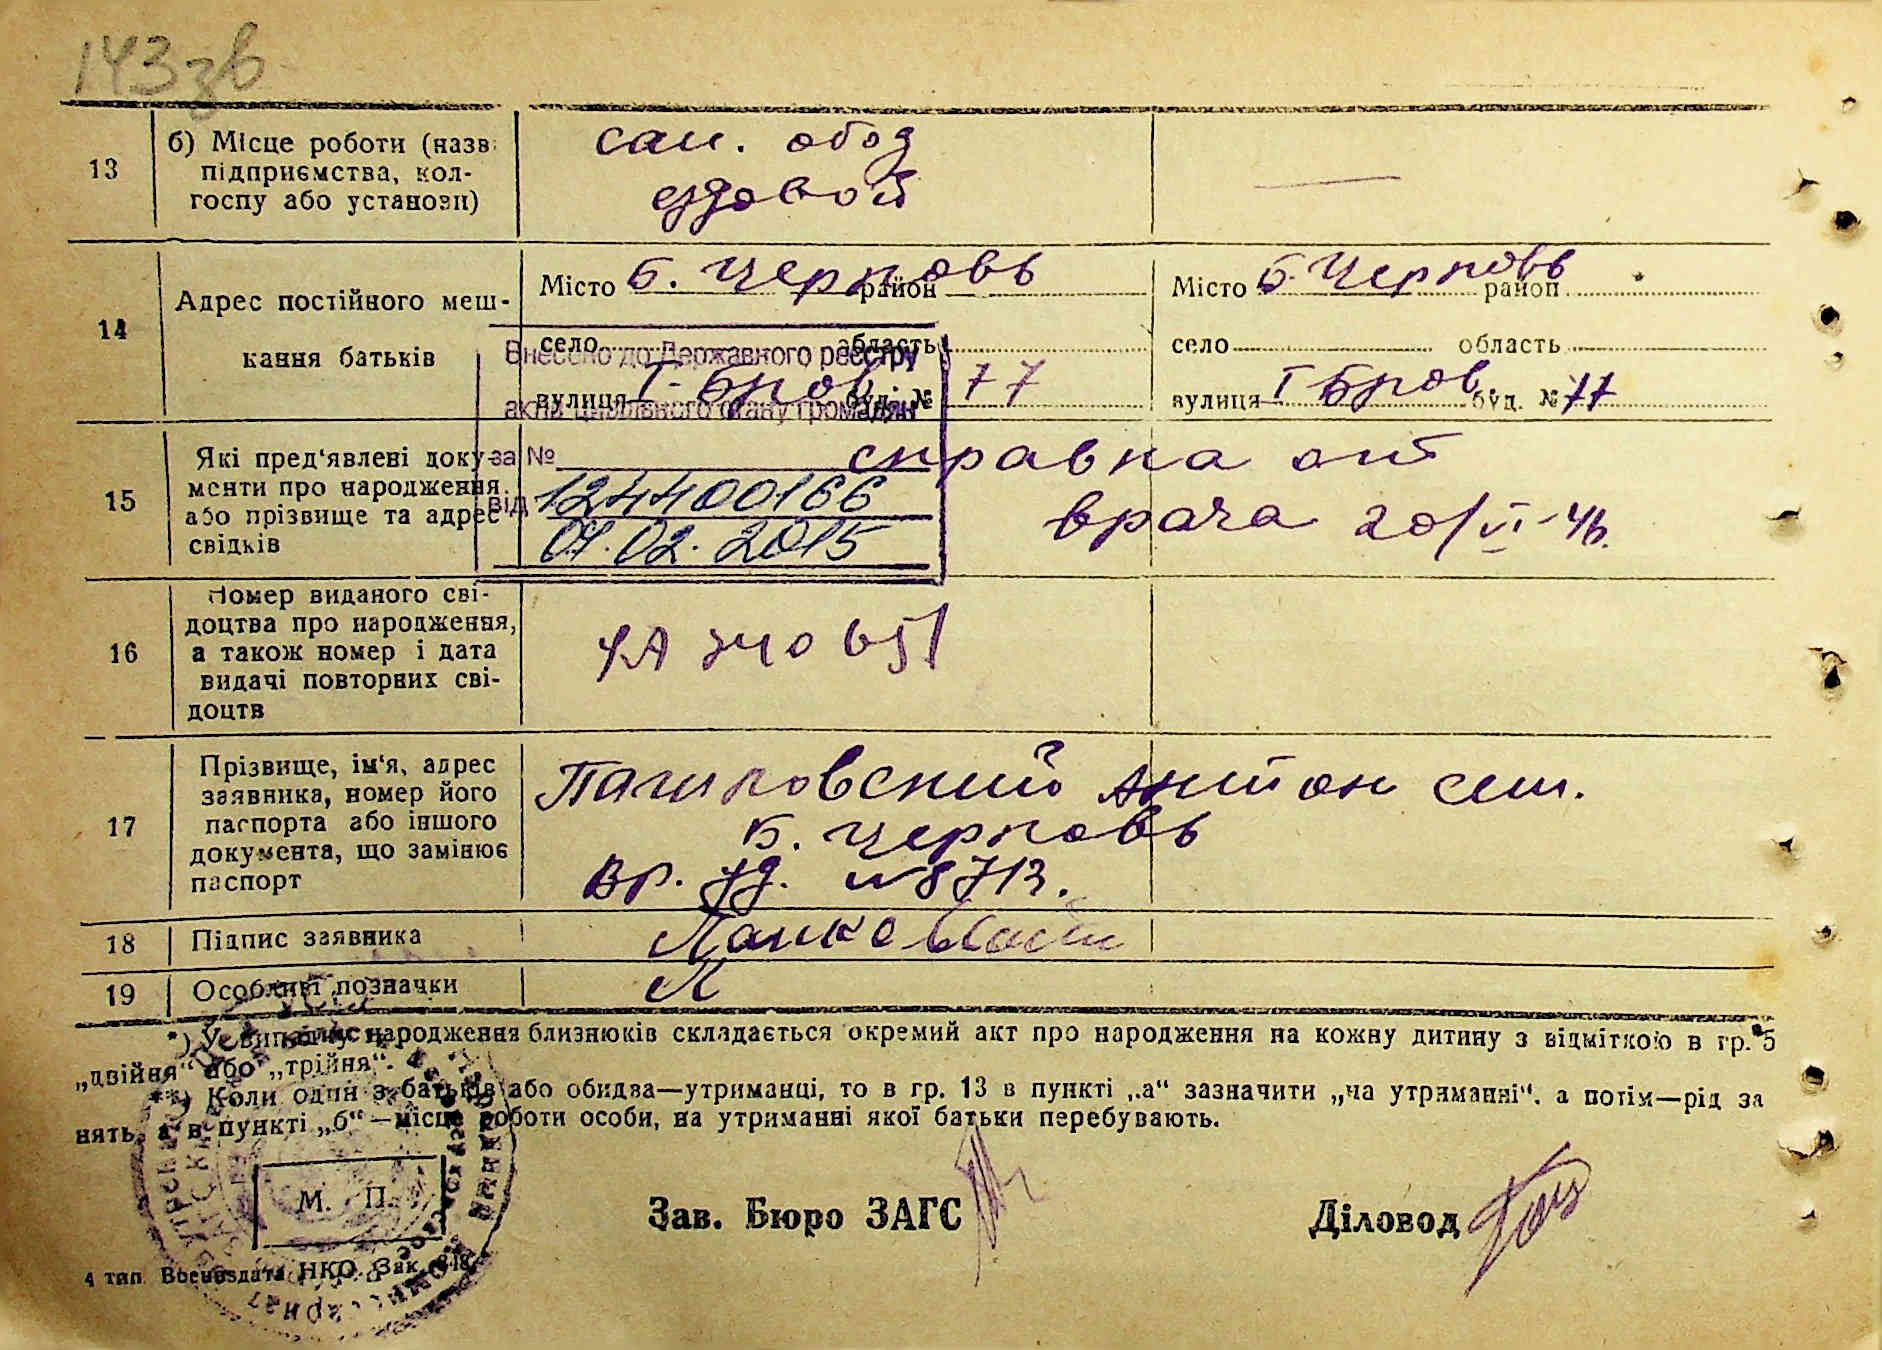 143зв
13
б) Місце роботи (назв
підприємства, кол-
госпу або установи)
сан. обоз
ездовой
14
Адрес постійного меш-
кання батьків
Місто Б. Церковь район
село область
вулиця І-Бров буд. № 77
Місто Б. Церковь район
село область
вулиця І Бров буд. № 77
Внесено до Державного реєстру
актів цивільного стану громадян
за №
від 124400166
01.02.2015
15
Які пред'явлені доку-
менти про народження
або прізвище та адрес
свідків
справка от
врача 20/VI-46.
16
Номер виданого сві-
доцтва про народження,
а також номер і дата
видачі повторних сві-
доцтв
17
Прізвище, ім'я, адрес
заявника, номер його
паспорта або іншого
документа, що замінює
паспорт
Антон сем.
Б. Церковь
Вр. уд. №8713.
18
Підпис заявника
19
Особливі позначки
*) У випадку народження близнюків складається окремий акт про народження на кожну дитину з відміткою в гр. 5
„двійня“ або „трійня“.
**) Коли один з батьків або обидва—утриманці, то в гр. 13 в пункті „а“ зазначити „на утриманні“, а потім—рід за
нять, а в пункті „б“—місце роботи особи, на утриманні якої батьки перебувають.
М. П.
Зав. Бюро ЗАГС
Діловод
4 тип. Воениздата НКО. Зак. 818